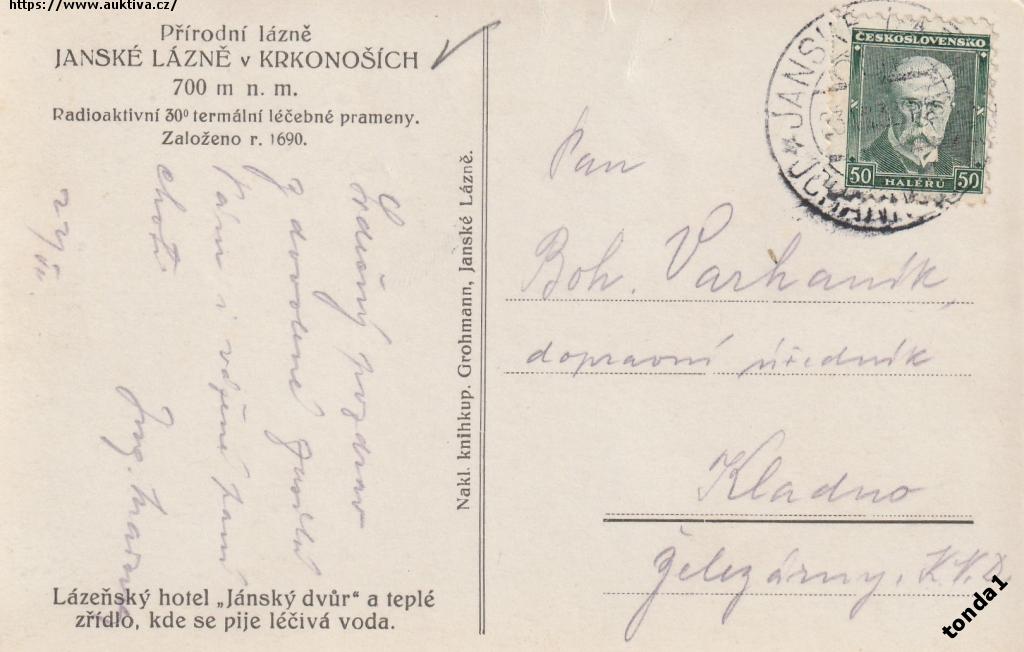 https://www.auktiva.cz/
Přírodní lázně
JANSKÉ LÁZNĚ v KRKONOŠÍCH
700 m n. m.
Radioaktivní 30⁰ termální léčebné prameny.
Založeno r. 1690.
Srdečný pozdrav
z dovolené
Vám i vážené paní
choti
Ing.
Lázeňský hotel „Jánský dvůr“ a teplé
zřídlo, kde se pije léčivá voda.
Nakl. knihkup. Grohmann, Janské Lázně.
ČESKOSLOVENSKO
50 HALÉŘŮ 50
JANSKÉ
Pan
Boh. Varhaník,
dopravní úředník
Kladno
Železárny,
tonda1